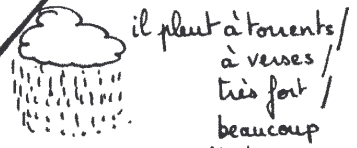 il pleut à torrents /
à verses /
très fort /
beaucoup